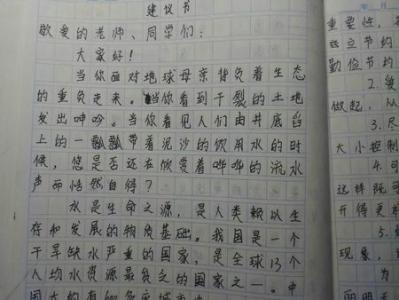 建议书
敬爱的老师、同学们：
大家好！
当你面对地球母亲背负着生态
的重负走来。当你看到干裂的土地
发出呻吟。当你看见人们由井底舀
上的一瓢瓢带着泥沙的饮用水的时
候，您是否还在欣受着哗哗的流水
声而怡然自得？
水是生命之源，是人类赖以生
存和发展的物质基础。我国是一个
干旱缺水严重的国家，是全球13个
人均水资源最贫乏的国家之一。中
国大约有
重要性，
应立节约
勤俭节约
2.
做起，从
3.尽
大小控制
4.可
这样既可
开得更
5.
现象，
为